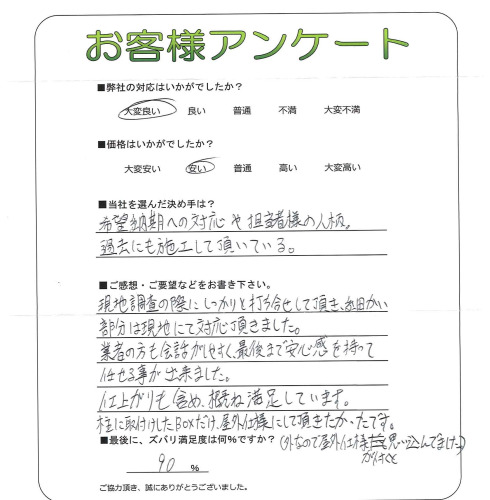 お客様アンケート
■弊社の対応はいかがでしたか？
大変良い 良い 普通 不満 大変不満
■価格はいかがでしたか？
大変安い 安い 普通 高い 大変高い
■当社を選んだ決め手は？
希望納期への対応や担当者様の人柄。
過去にも施工して頂いている。
■ご感想・ご要望などをお書き下さい。
現地調査の際にしっかりと打ち合せして頂き、細かい
部分は現地にて対応頂きました。
業者の方も会話がしやすく、最後まで安心感を持って
任せる事が出来ました。
仕上がりも含め、概ね満足しています。
柱に取付けしたBoxだけ、屋外仕様にして頂きたかったです。
■最後に、ズバリ満足度は何％ですか？ (外なので屋外仕様と思い込んでました)
90 ％
ご協力頂き、誠にありがとうございました。